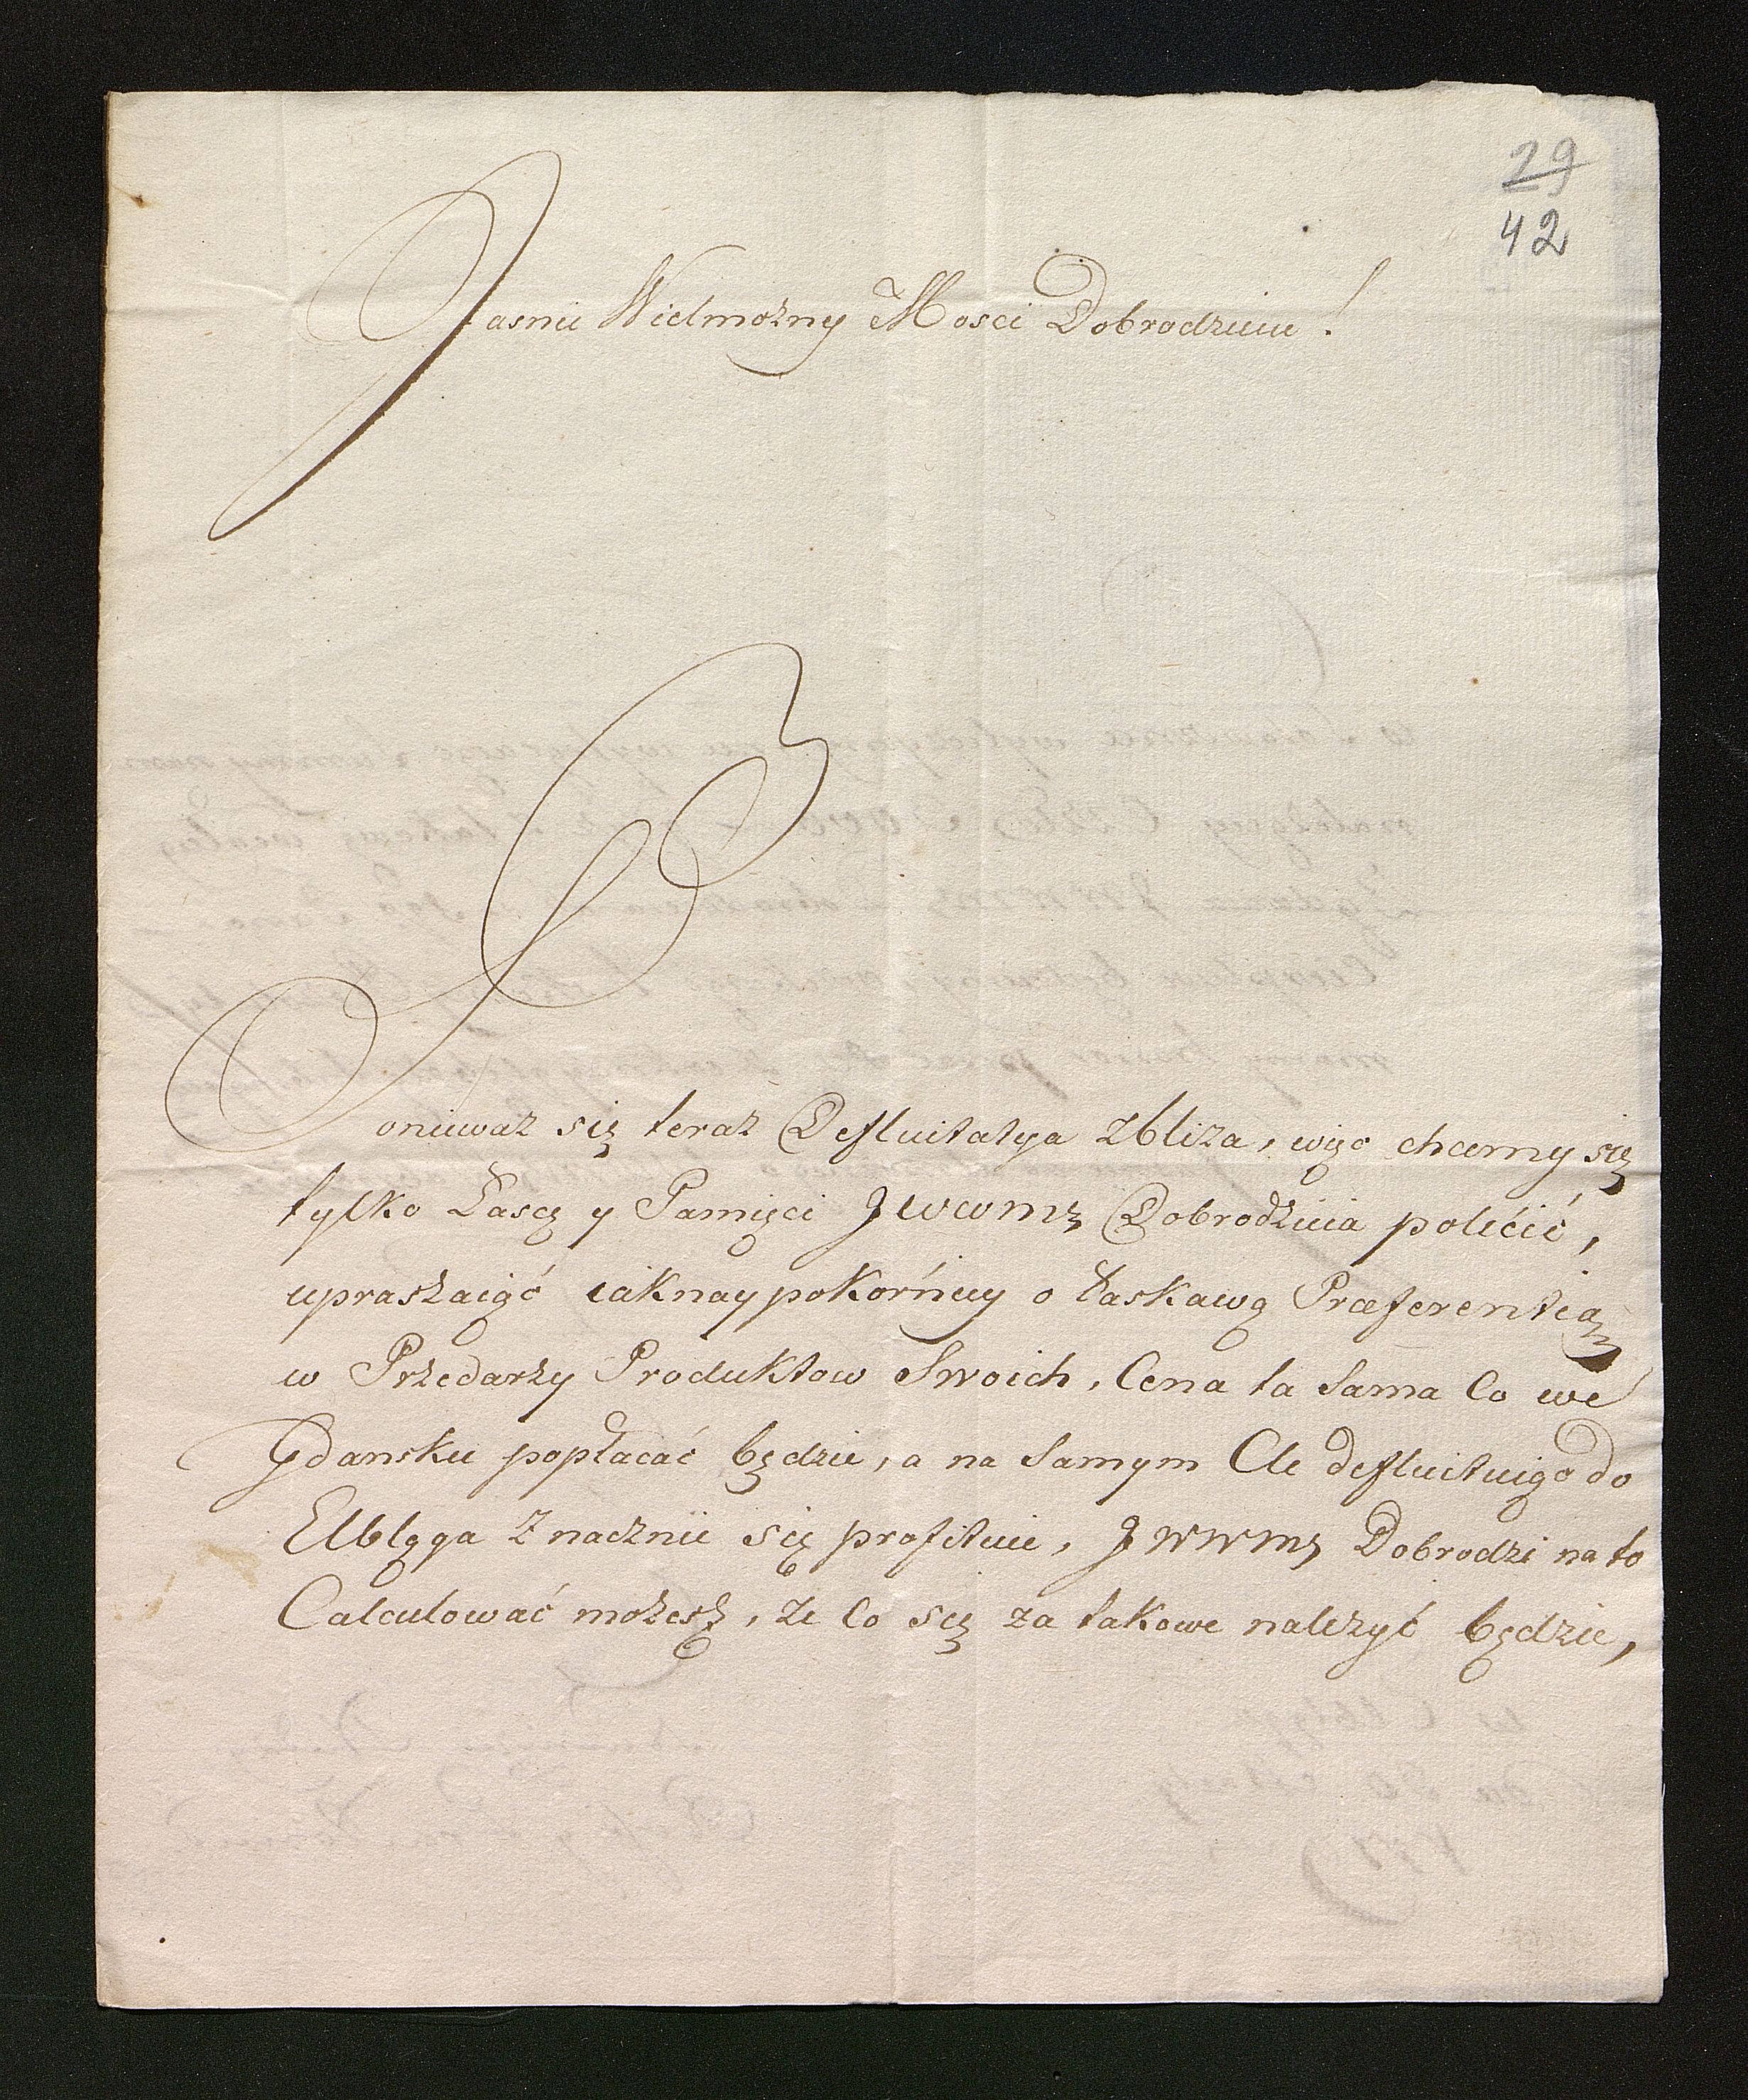 29
42
Jasnie Wielmożny Mosci Dobrodzieiu!
Poniewaz się teraz Defluitatya zbliza, więc chcemy się
tylko Łascę y Pamięci JWWMę Dobrodzieia polećić,
upraszaiąć iaknaypokorńiey o łaskawą Præferentią
w Przedarzy Produktow Swoich, Cena ta Sama Co we
Gdansku popłacać będzie, a na Samym Cle defluituiąc do
Elbląga Znacznie się profituie, JWWMę Dobrodzi na to
Calculować możesz, że Co się za takowe należyć będzie,